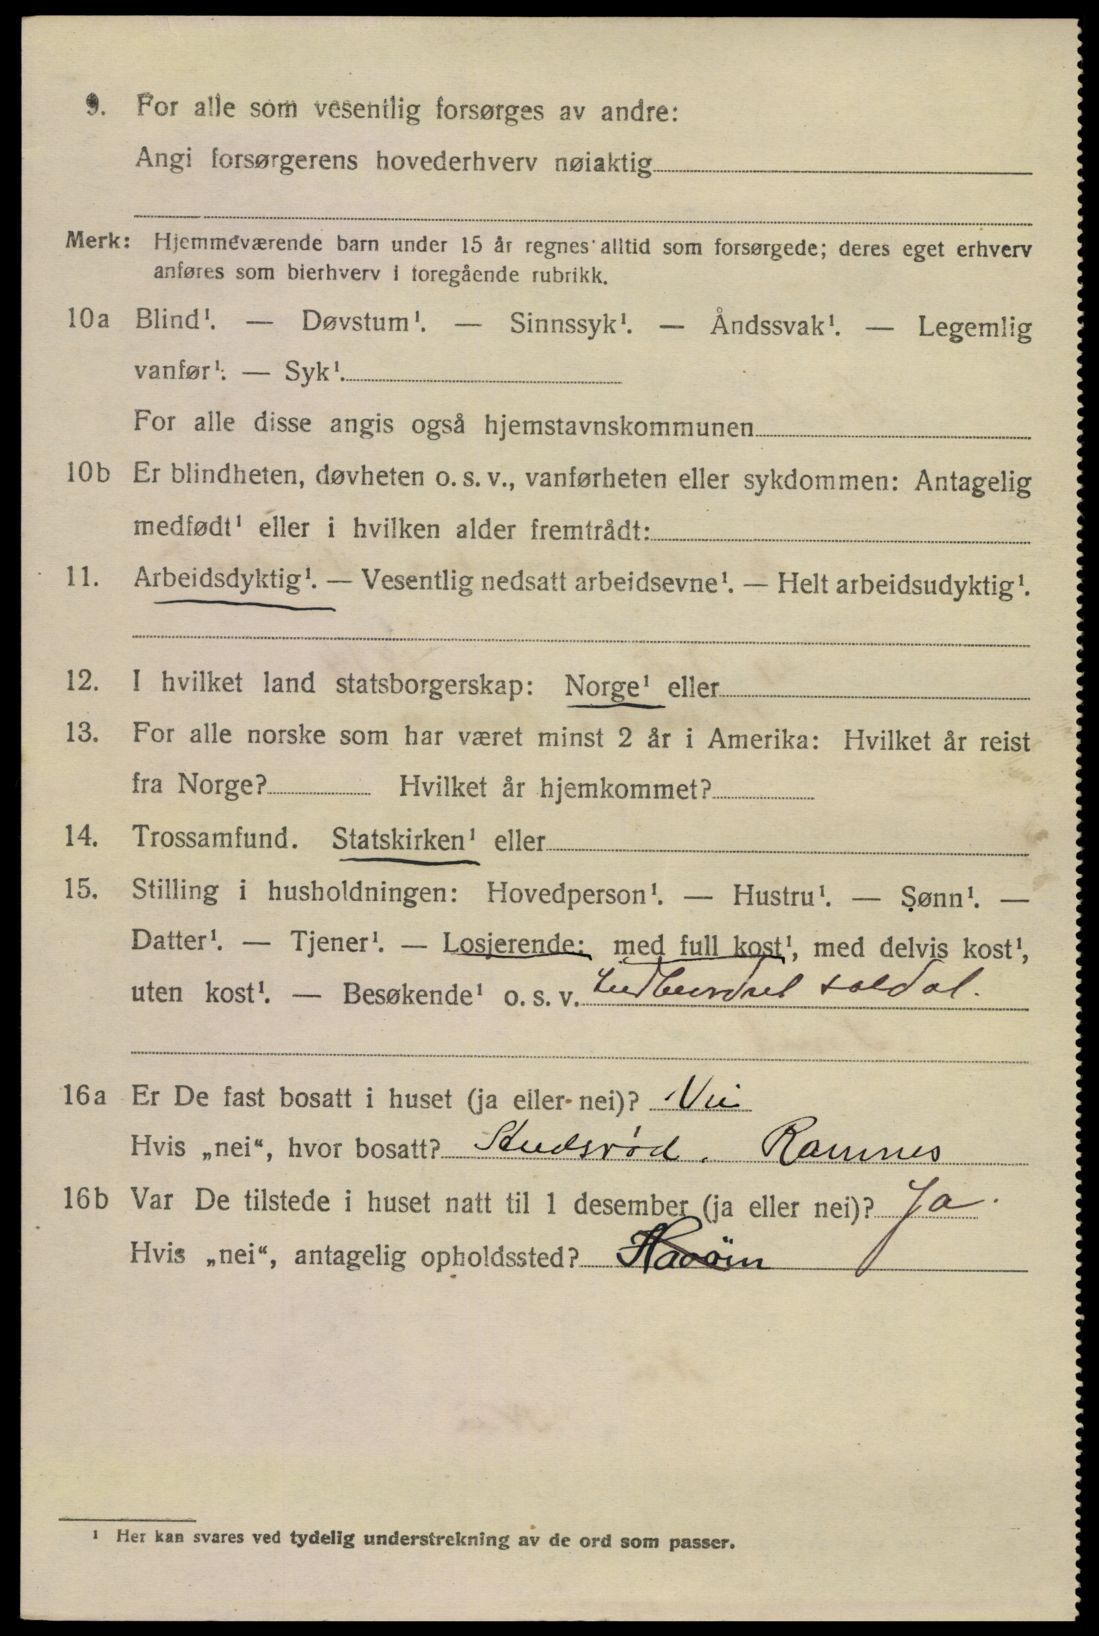 9. For alle som vesentlig forsørges av andre:
Angi forsørgerens hovederhverv nøiaktig
Merk: Hjemmeværende barn under 15 år regnes alltid som forsørgede; deres eget erhverv
anføres som bierhverv i foregående rubrikk.
10a Blind¹. — Døvstum¹. — Sinnssyk¹. — Åndssvak¹. — Legemlig
vanfør¹. — Syk¹.
For alle disse angis også hjemstavnskommunen
10b Er blindheten, døvheten o. s. v., vanførheten eller sykdommen: Antagelig
medfødt¹ eller i hvilken alder fremtrådt:
11. Arbeidsdyktig¹. — Vesentlig nedsatt arbeidsevne¹. — Helt arbeidsudyktig¹.
12. I hvilket land statsborgerskap: Norge¹ eller
13. For alle norske som har været minst 2 år i Amerika: Hvilket år reist
fra Norge? Hvilket år hjemkommet?
14. Trossamfund. Statskirken¹ eller
15. Stilling i husholdningen: Hovedperson¹. — Hustru¹. — Sønn¹. —
Datter¹. — Tjener¹. — Losjerende: med full kost¹, med delvis kost¹,
uten kost¹. — Besøkende¹ o. s. v. soldat.
16a Er De fast bosatt i huset (ja eller nei)? Nei
Hvis „nei“, hvor bosatt? Ramnes
16b Var De tilstede i huset natt til 1 desember (ja eller nei)? Ja.
Hvis „nei“, antagelig opholdssted?
¹ Her kan svares ved tydelig understrekning av de ord som passer.